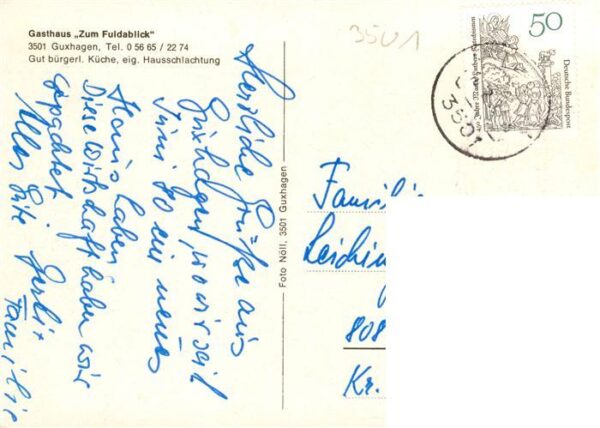 Gasthaus „Zum Fuldablick"
3501 Guxhagen, Tel. 0 56 65 / 22 74
Gut bürgerl. Küche, eig. Hausschlachtung
3501
50
Deutsche Bundespost
3501
Herzliche Grüße aus
Guxhagen, wo wir seit
Juni 80 ein neues
Haus haben
Diese Wirtschaft haben wir
gepachtet
Alles Gute
Familie
Foto Nöll, 3501 Guxhagen
Famili
808
Kr.